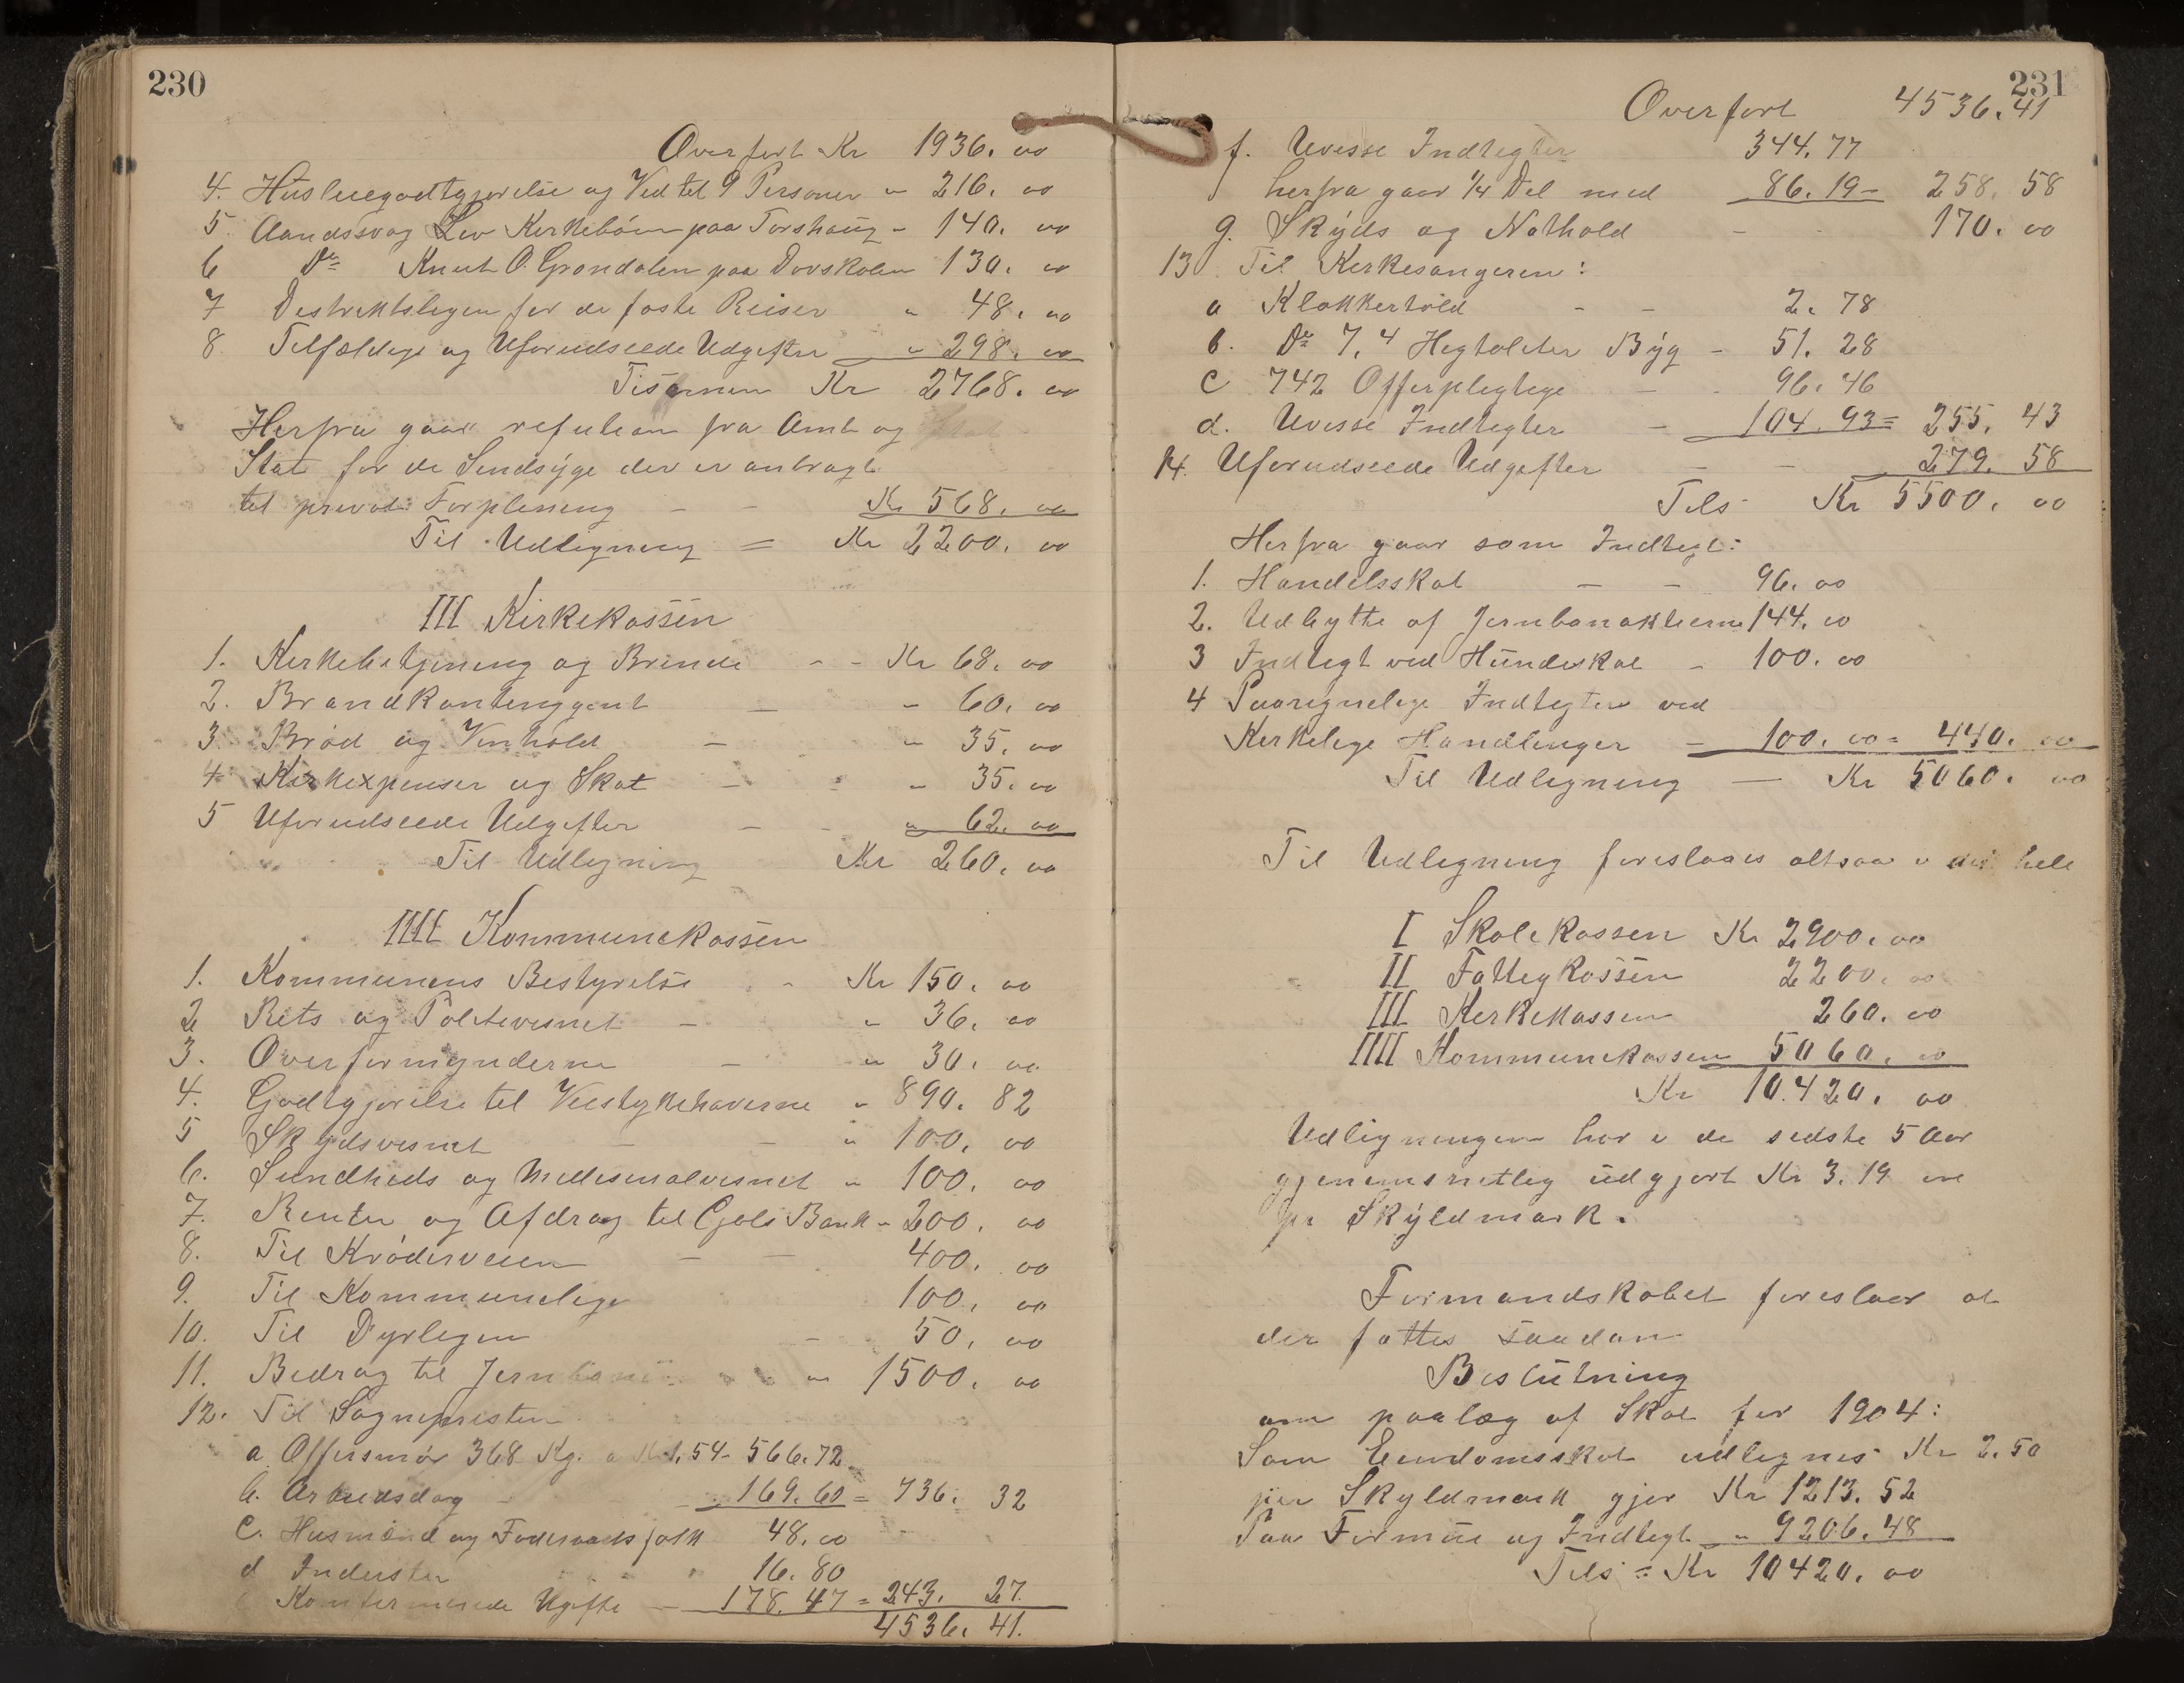 230
Overført Kr 1936. 00
4. Husleiegodtgjørelse og Ved til 9 Personer " 216. 00
5. Aandssvag Liv Kirkebøen paa Torshaug - 140. 00
6 Do Knut O. Grøndalen paa Dovskolen 130. 00
7 Destriktslegen for de faste Reiser " 48. 00
8 Tilfældige og Uforudseede Udgifter " 298. 00
Tilsamen Kr 2768. 00
Herfra gaar refusion fra Amt og
Stat for de Sindsyge der er anbragt
til privat Forplening - - Kr 568. 00
Til Udligning = Kr 2200. 00
III Kirkekassen
1. Kirkebetjening og Brende - - Kr 68. 00
2. Brandkontinggent - - 60. 00
3. Brød og Vinhold - " 35. 00
4 Kirkexpenser og Skat - " 35. 00
5 Uforudseede Udgifter - - " 62. 00
Til Udligning Kr 260. 00
IIII Kommunekassen
1. Kommunens Bestyrelse - Kr 150. 00
2 Rets og Politivesnet - " 36. 00
3. Overformynderne - " 30. 00
4. Godtgjørelse til Veistykkehaverne " 890. 82
5 Skydsvesnet - - " 100. 00
6. Sundheds og Medesinalvesnet " 100. 00
7. Renter og Afdrag til Gols Bank - 200. 00
8. Til Krøderveien - - 400. 00
9. Til Kommunelege 100. 00
10. Til Dyrlegen - 50. 00
11. Bedrag til Jernbanen " 1500. 00
12. Til Sognepresten
a Offersmør 368 Kg. a Kr 1,54 - 566.72
b. Arbeidsdag - 169.60 = 736. 32
c. Husmænd og Foderaadsfolk 48.00
d Inderster " 16.80
Konfirmerede Ugifte - 178.47 = 243. 27.
4536. 41.
231
Overført 4536.41
f. Uvisse Indtegter 344.77
herfra gaar 1/4 Del med 86.19 - 258. 58
g. Skyds og Nathold - - 170. 00
13 Til Kirkesangeren:
a Klokkertold - - 2. 78
b. Do 7,4 Hegtoliter Byg - 51. 28
c 742 Offerpligtige - - 96. 46
d. Uvisse Indtegter - 104. 93 = 255. 43
14. Uforudseede Udgifter - - 279. 58
Tils Kr 5500. 00
Herfra gaar som Indtegt:
1. Handelsskat - - 96. 00
2. Udbytte af Jernbaneaktierne 144. 00
3 Indtegt ved Hundeskat - 100. 00
4 Paaregnelige Indtegter ved
Kirkelige Handlinger - 100. 00 = 440. 00
Til Udligning - Kr 5060. 00
Til Udligning foreslaaes altsaa i det hele
I Skolekassen Kr 2900. 00
II Fattigkassen 2200. 00
III Kirkekassen 260. 00
IIII Kommunekassen 5060. 00
Kr 10.420. 00
Udligningen har i de sidste 5 Aar
gjenemsnitlig udgjort Kr 3.19 øre
pr Skyldmark.
Formandskabet foreslaar at
der fattes saadan
Beslutning
om paalæg af Skat for 1904:
Som Eiendomsskat udlignes Kr 2.50
per Skyldmark gjør Kr 1213. 52
Paa Formue og Indtegt " 9206. 48
Tils = Kr 10420. 00